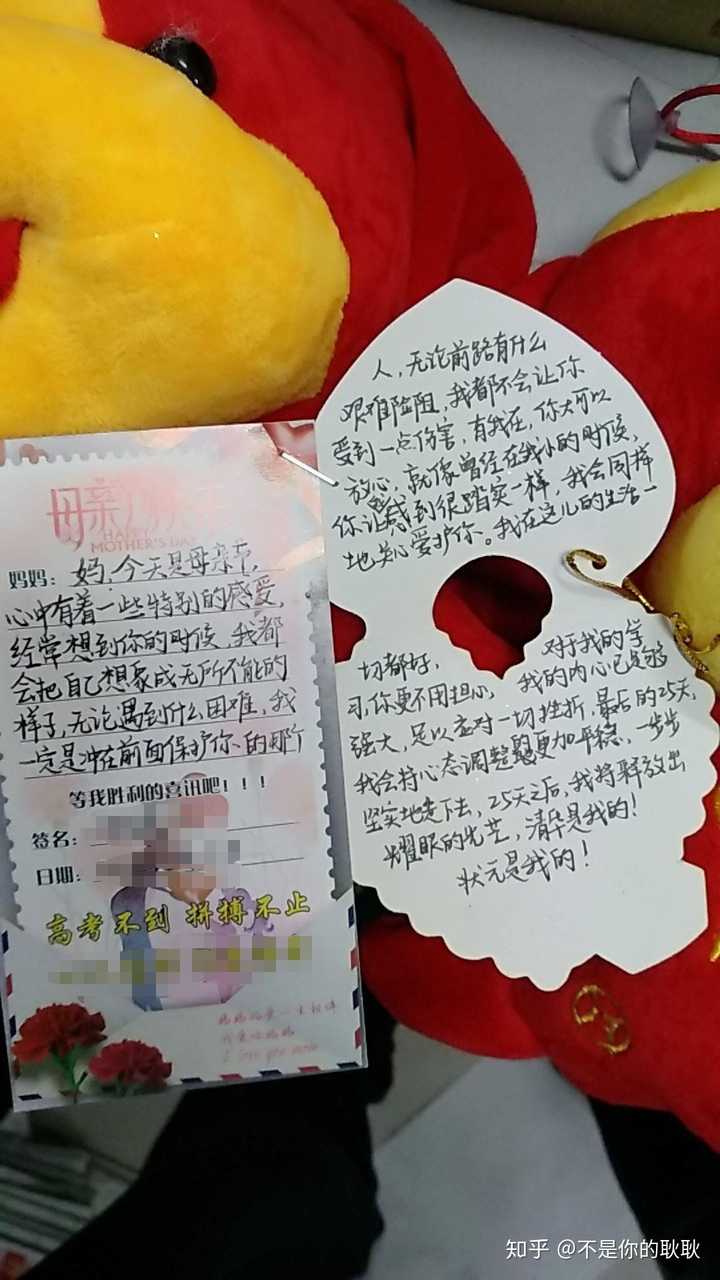 母亲节快乐
HAPPY
MOTHER'S DAY
妈妈：妈，今天是母亲节，
心中有着一些特别的感爱，
经常想到你的时候，我都
会把自己想象成无所不能的
样子，无论遇到什么困难，我
一定是冲在前面保护你的那个
等我胜利的喜讯吧！！！
签名：
日期：
高考不到 拼搏不止
我爱你妈妈
人，无论前路有什么
艰难险阻，我都不会让你
受到一点伤害，有我在，你大可以
放心，就像曾经在我小的时候，
你让我感到很踏实一样，我会同样
地关心爱护你。我在这儿的生活一
切都好，对于我的学
习，你更不用担心，我的内心已足够
强大，足以应对一切挫折，最后的25天，
我会将心态调整的更加平稳，一步步
坚实地走下去，25天之后，我将释放出
耀眼的光芒，清华是我的！
状元是我的！
知乎 @不是你的耿耿